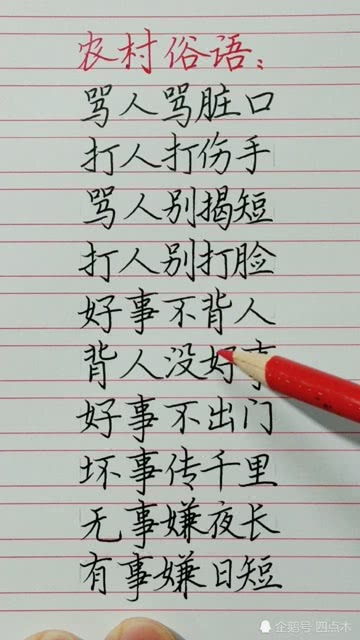 农村俗语：
骂人骂脏口
打人打伤手
骂人别揭短
打人别打脸
好事不背人
背人没好事
好事不出门
坏事传千里
无事嫌夜长
有事嫌日短
企鹅号 四点木